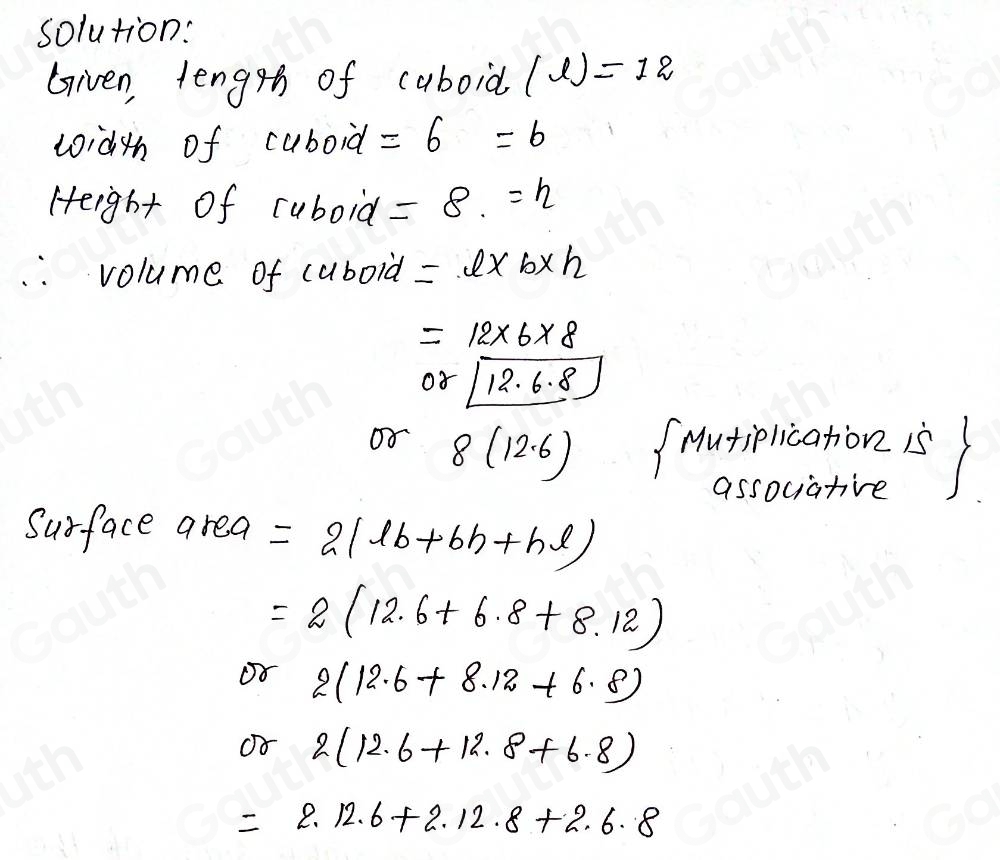 Solution:
Given, length of cuboid (l) = 12
width of cuboid = 6 = b
Height of cuboid = 8. = h
∴ volume of cuboid = l × b × h
= 12 × 6 × 8
or 12. 6. 8
or 8 (12.6) {Mutiplication is
associative}.
Surface area = 2(lb + bh + hl)
= 2 (12. 6 + 6. 8 + 8. 12)
or 2(12.6 + 8.12 + 6. 8)
or 2(12.6 + 12. 8 + 6.8)
= 2. 12. 6 + 2. 12. 8 + 2. 6. 8
Gauth